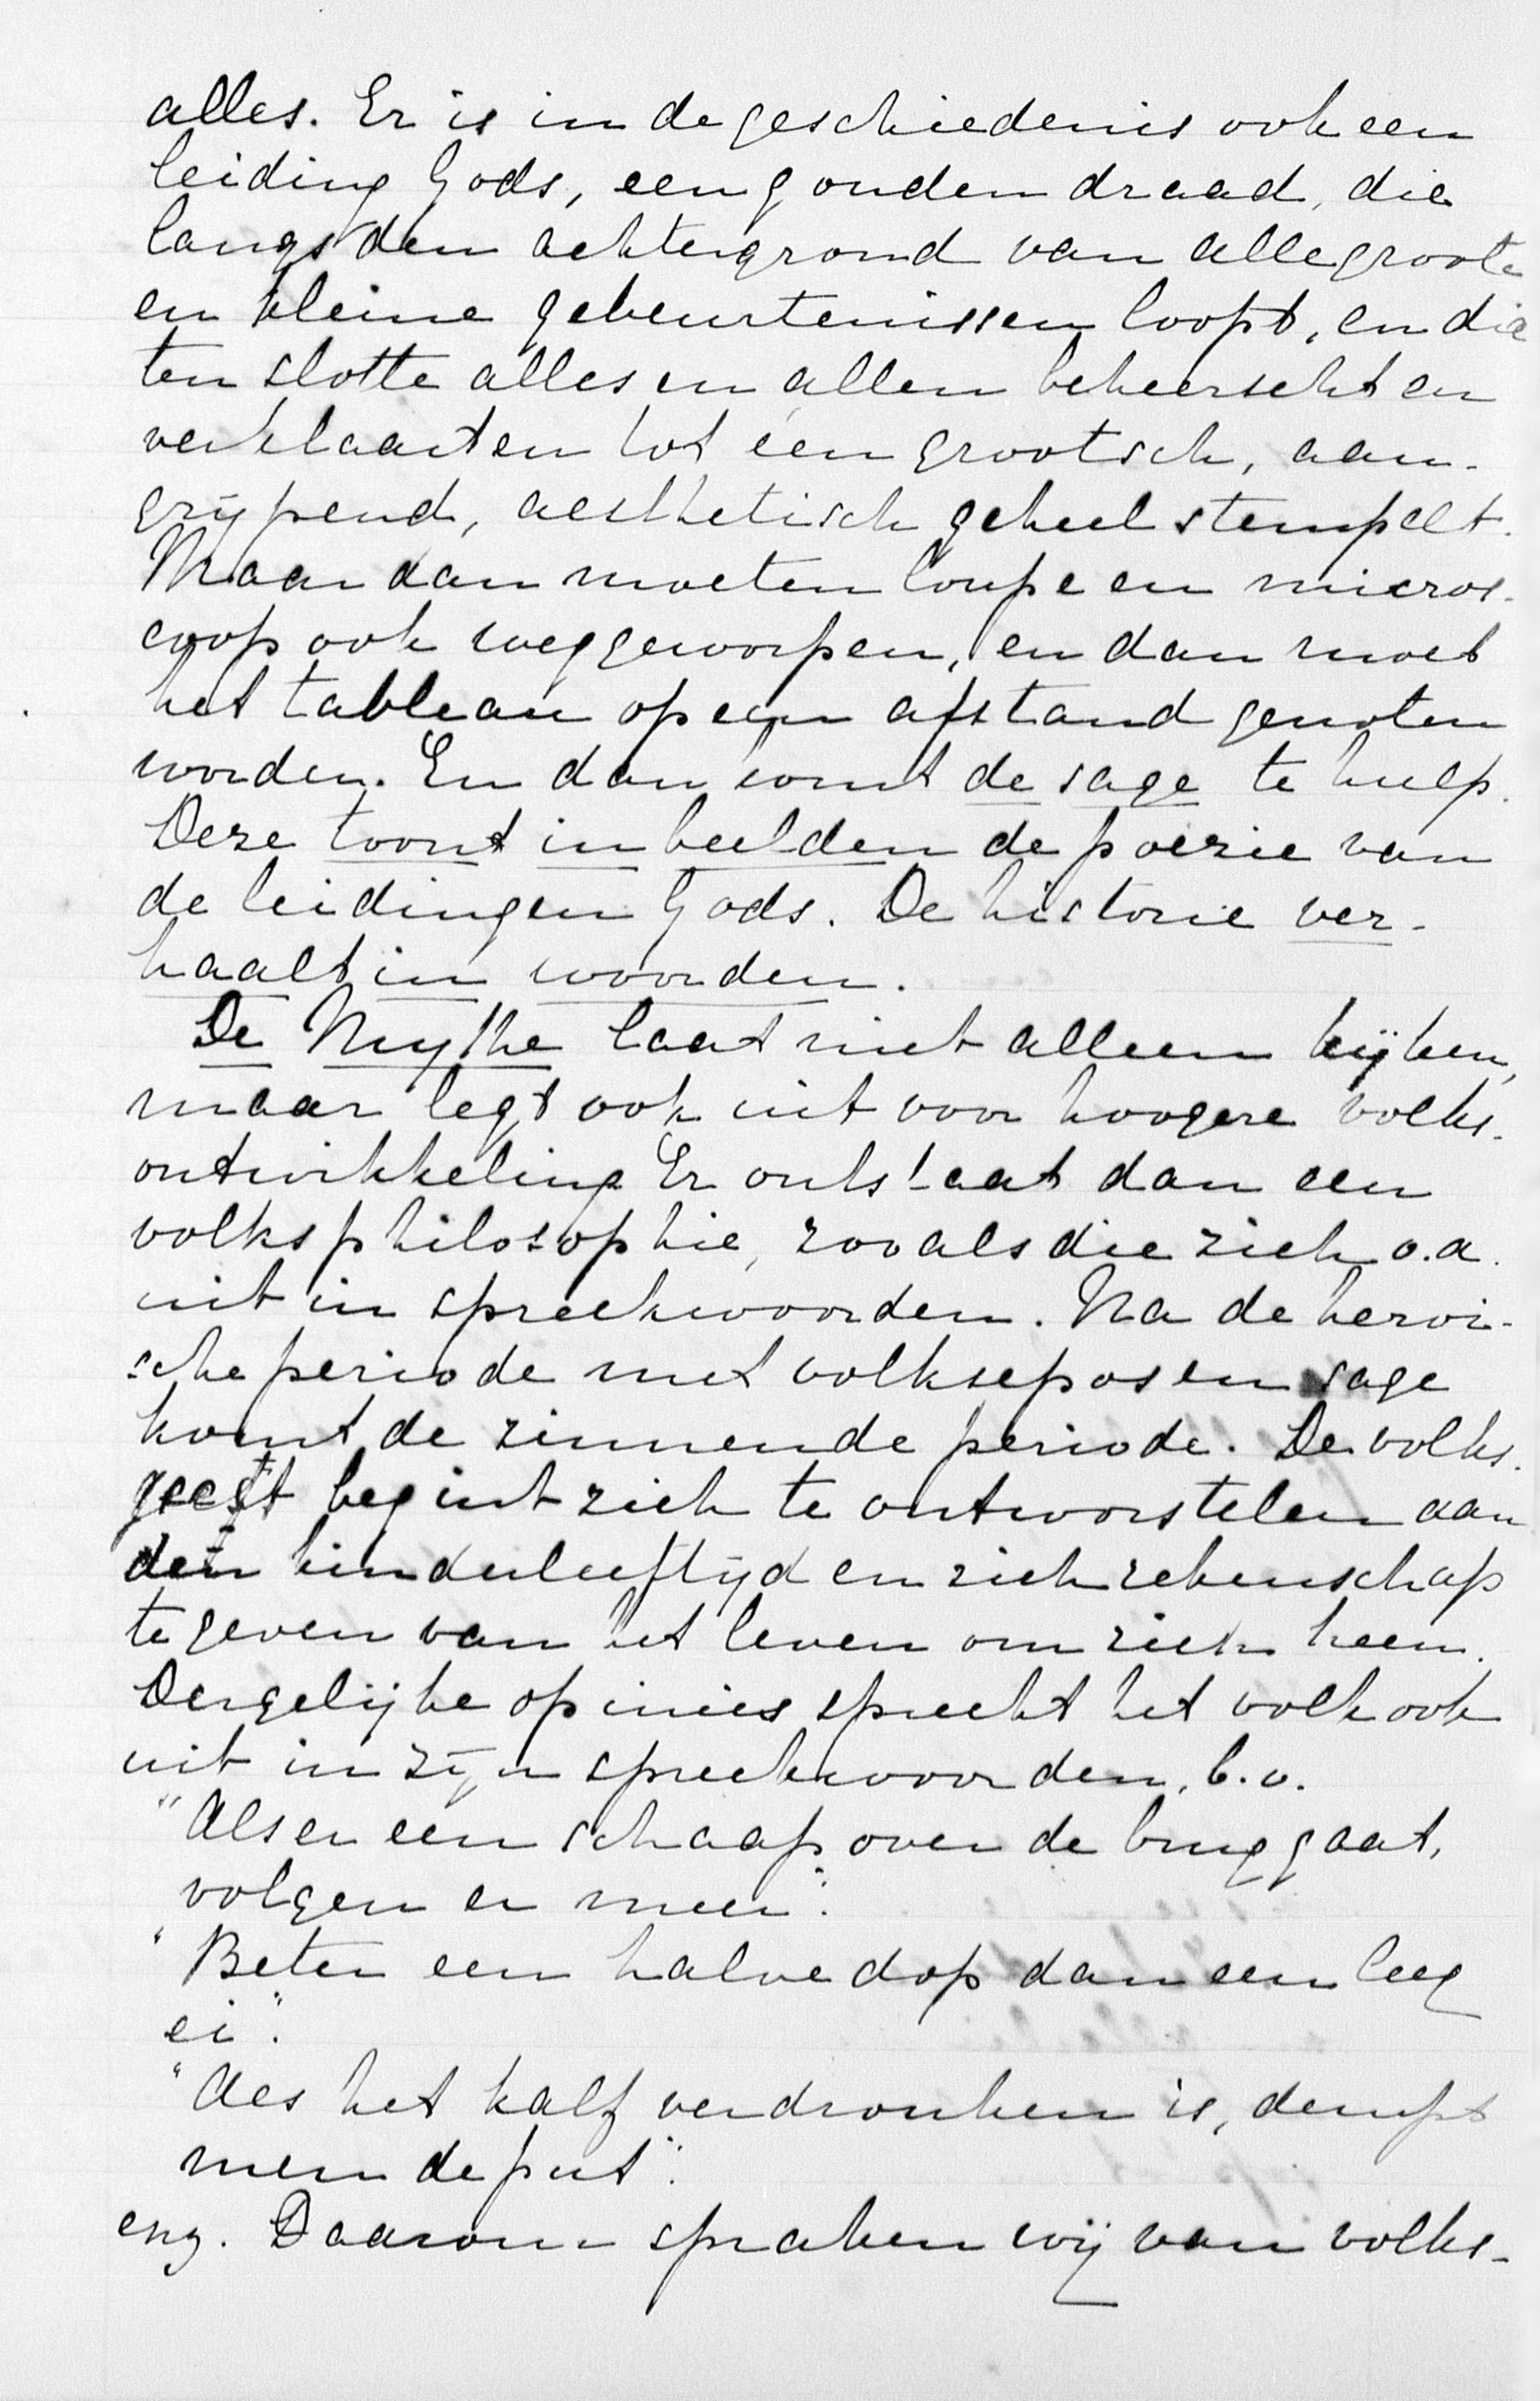 alles. Er is in de geschiedenis ook een
leiding Gods, een gouden draad, die
langs den achtergrond van alle groote
en kleine gebeurtenissen loopt, en die
ten slotte alles en allen beheerscht en
verklaart en tot één grootsch, aan-
grijpend, aesthetisch geheel stempelt.
Maar dan moeten loupe en micros-
coop ook weggeworpen, en dan moet
het tableau op een afstand genoten
worden. En dan komt de sage te hulp.
Deze toont in beelden de poëzie van
de leidingen Gods. De historie ver-
haalt in woorden.
De Mythe laat niet alleen kijken,
maar legt ook uit voor hoogere volks-
ontwikkeling Er ontstaat dan een
volksphilosophie, zooals die zich o.a.
uit in spreekwoorden. Na de heroi-
sche periode met volksepos en sage
komt de zinnende periode. De volks-
geest begint zich te ontworstelen aan
den kinderleeftijd en zich rekenschap
te geven van het leven om zich heen.
Dergelijke opinies spreekt het volk ook
uit in zijn spreekwoorden, b.v.
"Als er één schaap over de brug gaat,
volgen er meer".
"Beter een halve dop dan een leeg
ei".
"Als het kalf verdronken is, dempt
men de put".
enz. Daarom spraken wij van volks-